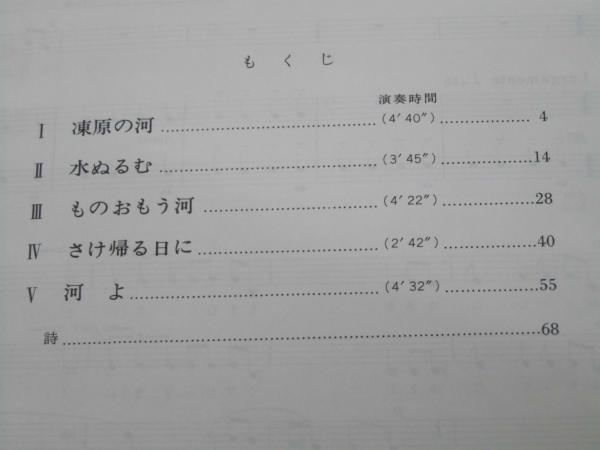 もくじ
演奏時間
Ⅰ 凍原の河 (4′40″) 4
Ⅱ 水ぬるむ (3′45″) 14
Ⅲ ものおもう河 (4′22″) 28
Ⅳ さけ帰る日に (2′42″) 40
Ⅴ 河 よ (4′32″) 55
詩 68